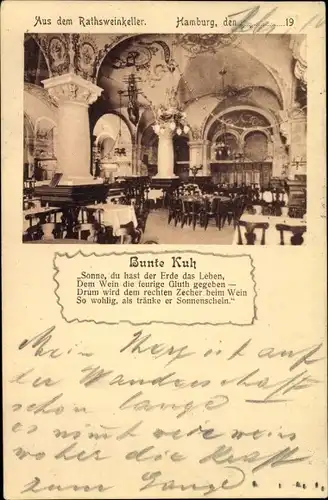 Aus dem Rathsweinkeller. Hamburg, den 19
Bunte Kuh
„Sonne, du hast der Erde das Leben,
Dem Wein die feurige Gluth gegeben —
Drum wird dem rechten Zecher beim Wein
So wohlig, als tränke er Sonnenschein."
Mein Herz ist auf
der Wanderschaft
schon lange
es nimt weis
woher die Kraft
zum Gange